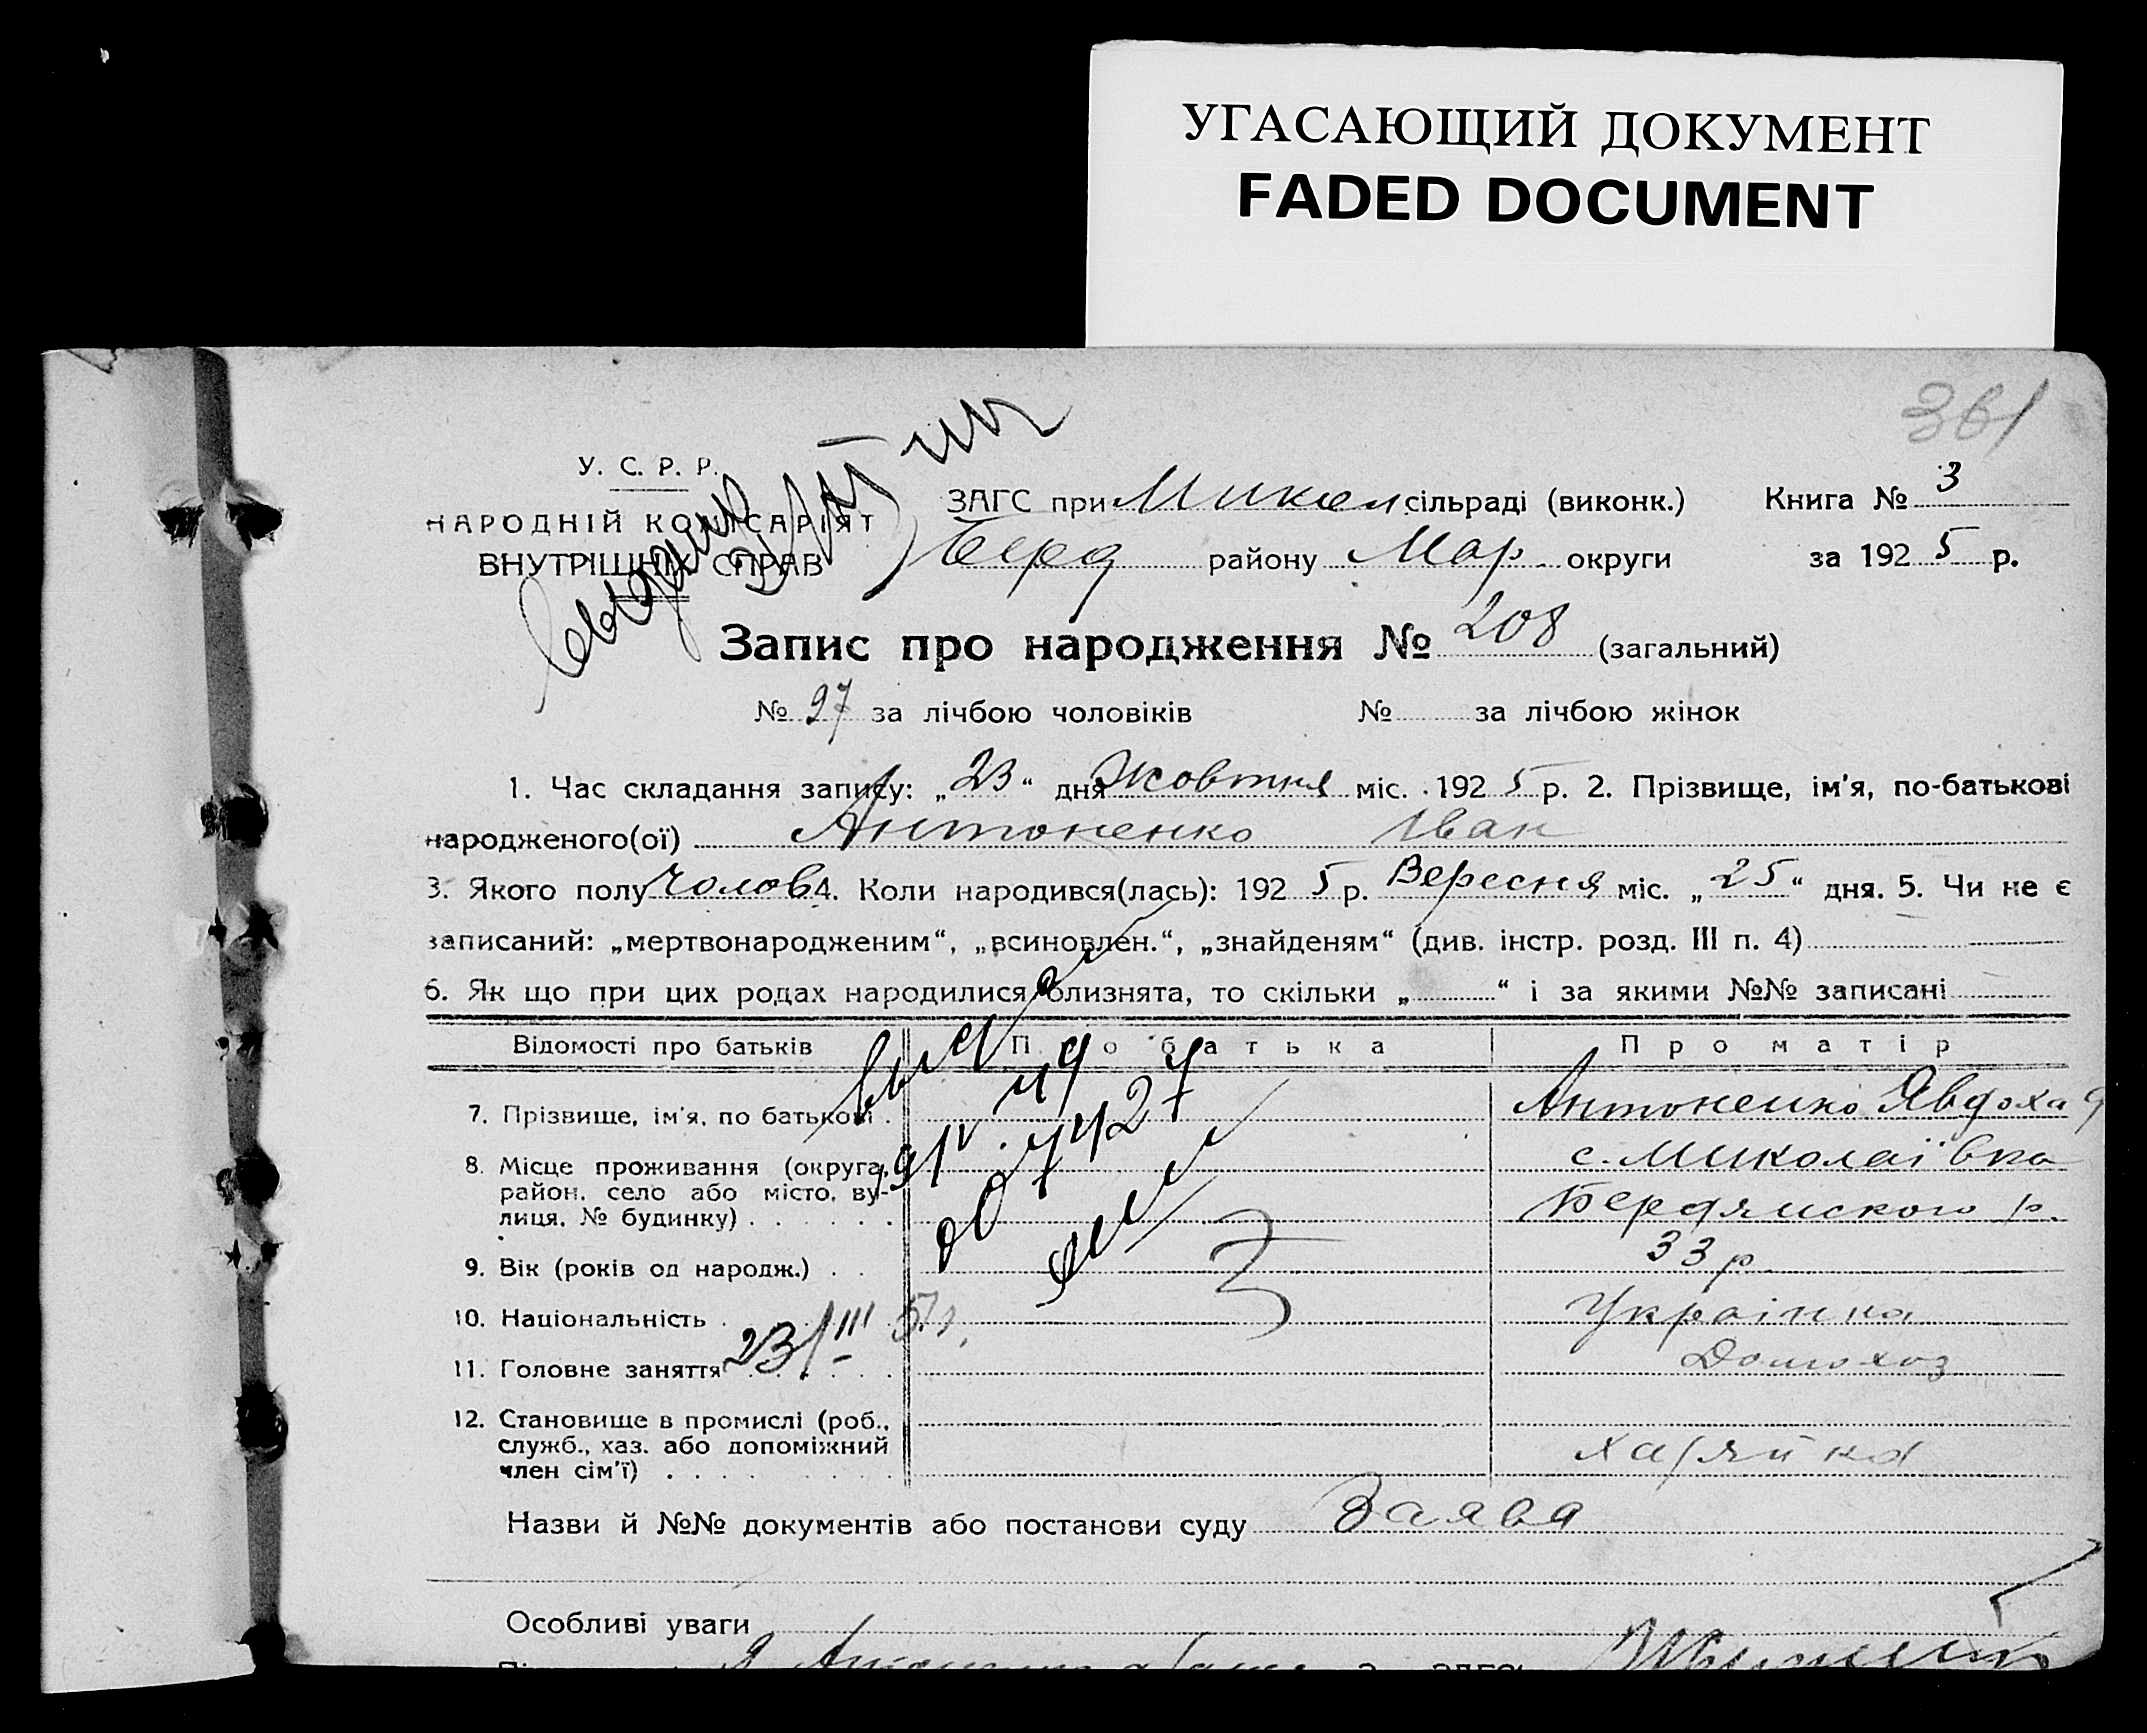 УГАСАЮЩИЙ ДОКУМЕНТ
FADED DOCUMENT
361
У. С. Р. Р.
НАРОДНІЙ КОМІСАРІЯТ
ВНУТРІШНІХ СПРАВ
ЗАГС при Микол сільраді (виконк.) Книга № 3
Берд району Мар. округи за 1925 р.
Запис про народження № 208 (загальний)
№ 97 за лічбою чоловіків № за лічбою жінок
1. Час складання запису: „23“ дня Жовтня міс. 1925 р. 2. Прізвище, ім'я, по-батькові
народженого(ої) Антоненко Іван
3. Якого полу Чолов 4. Коли народився(лась): 1925 р. Вересня міс. „25“ дня. 5. Чи не є
записаний: „мертвонародженим“, „всиновлен.“, „знайденям“ (див. інстр. розд. III п. 4)
6. Як що при цих родах народилися близнята, то скільки „ “ і за якими №№ записані
Відомості про батьків Про батька Про матір
7. Прізвище, ім'я, по батькові . Антоненко Явдоха
8. Місце проживання (округа, с. Миколаївка
район, село або місто, ву-
лиця, № будинку) . . . . . . Бердянского р.
9. Вік (років од народж.) . . 33 р
10. Національність . Українка
23/III 51г.
11. Головне заняття . . . . . . Домохоз
12. Становище в промислі (роб.,
служб., хаз. або допоміжний
член сім'ї) . . . . . . . . . хазяйка
Назви й №№ документів або постанови суду Заява
Особливі уваги